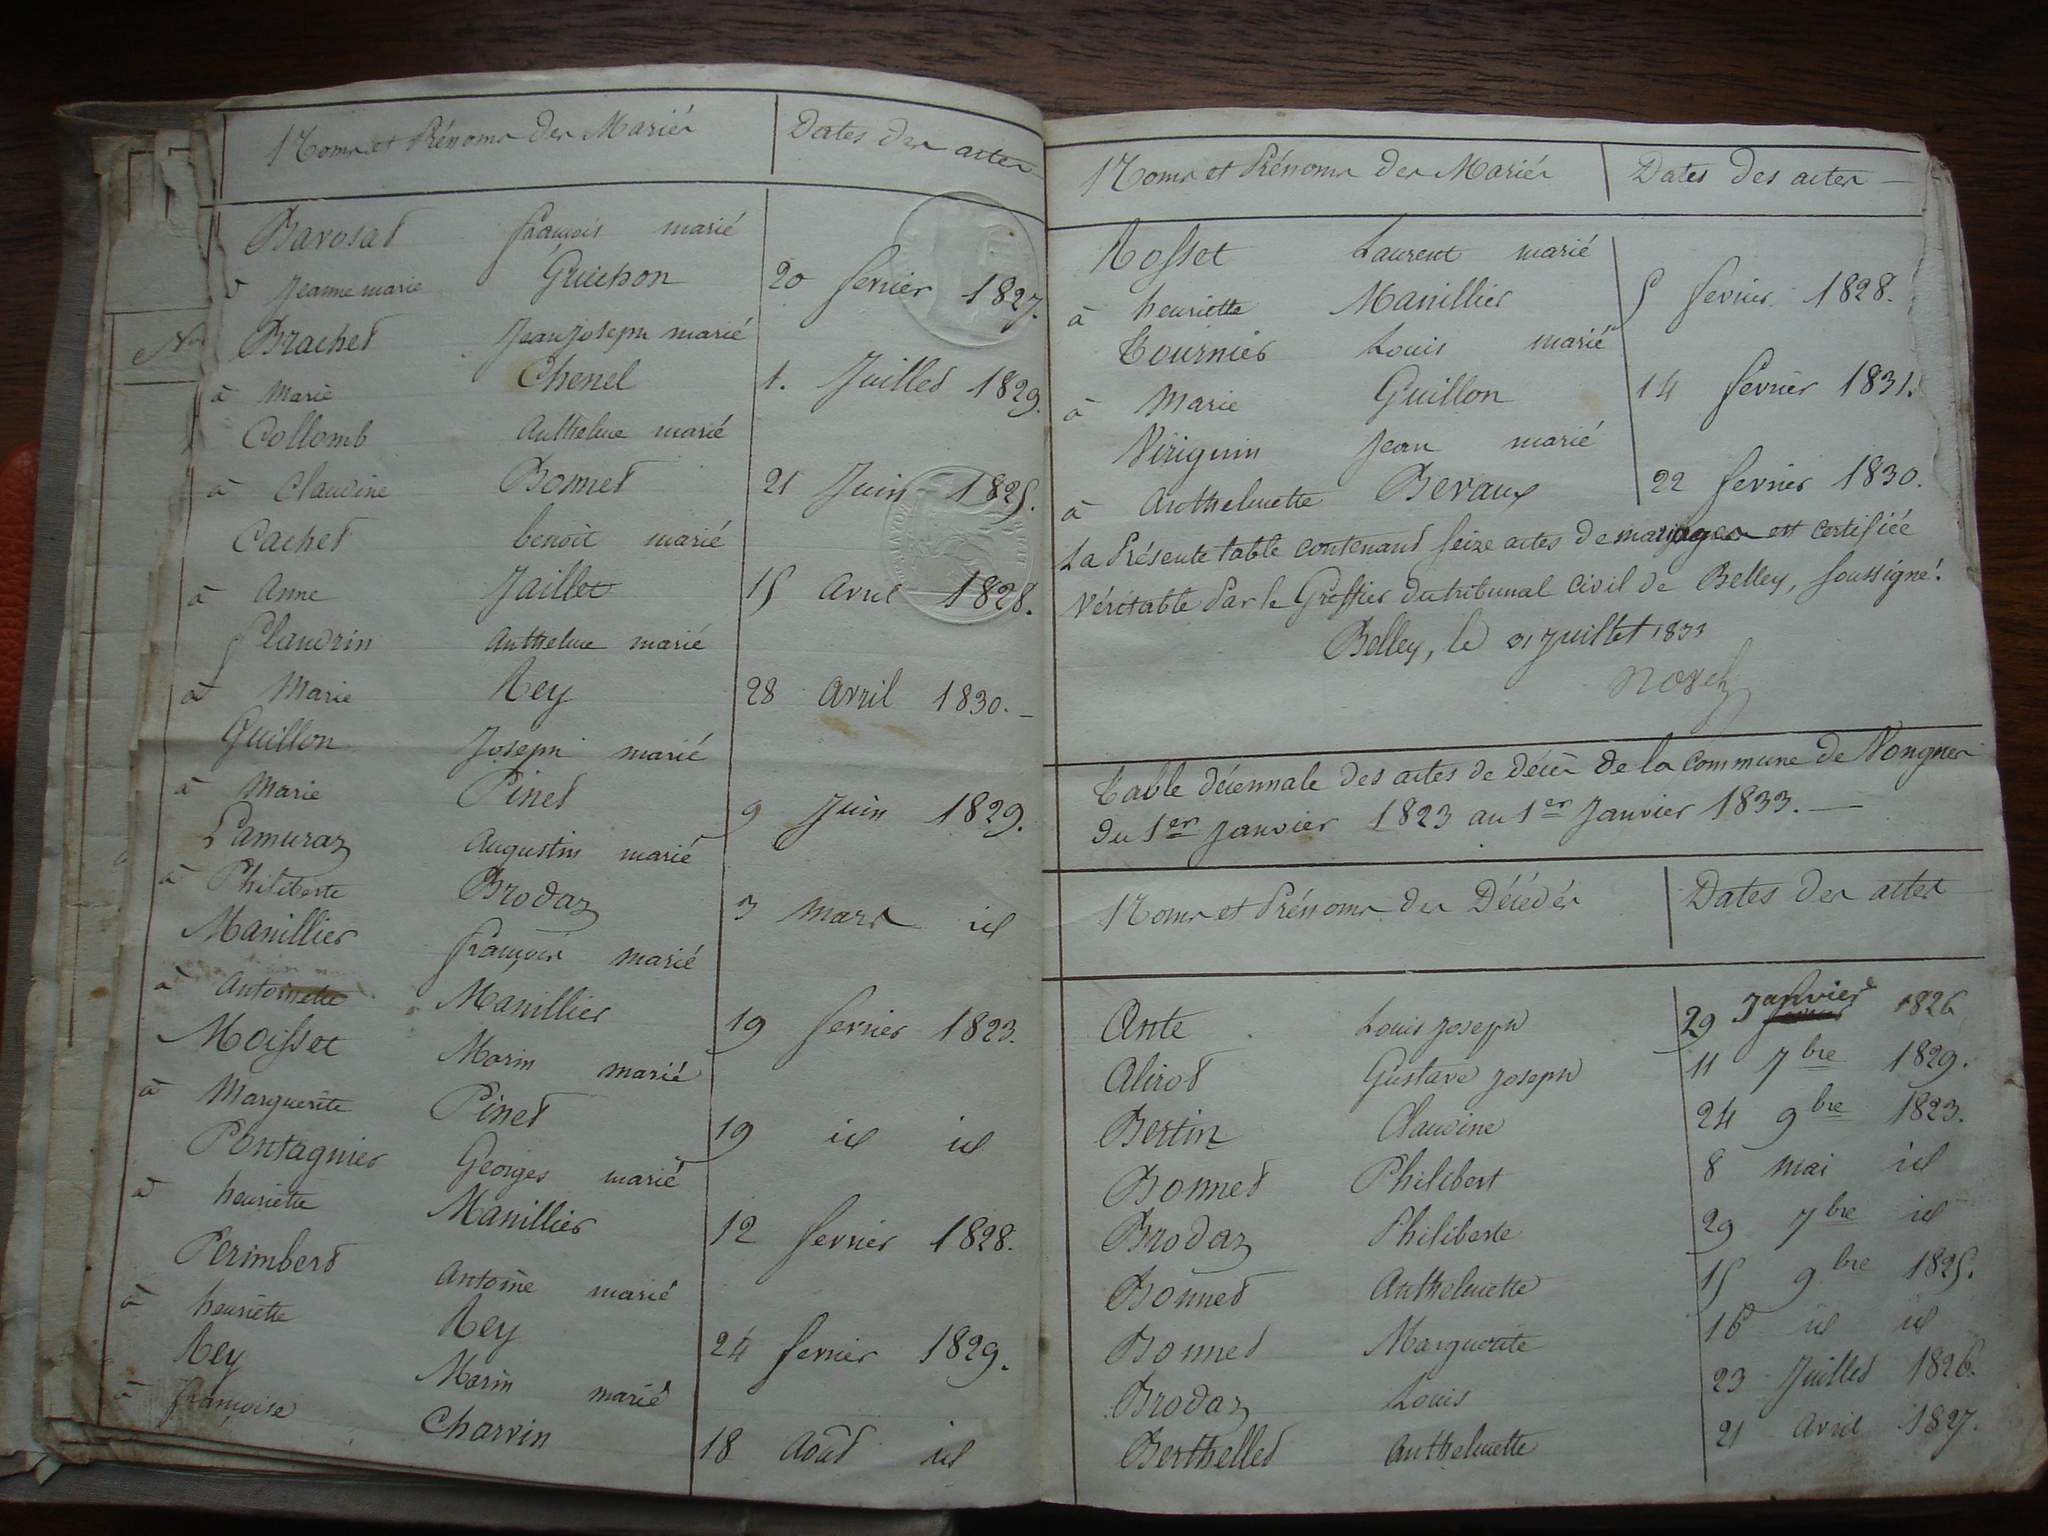 Noms et Prénoms des Mariés Dates des actes
Bavosat françois marié
à Jeanne marie Guichon 20 fevrier 1827.
Brachet Jean Joseph marié
à Marie Chenel 1. Juillet 1829.
Collomb Anthelme marié
à Claudine Bonnet 21 Juin 1825.
Cachet benoit marié
à Anne Jaillet 15 Avril 1828.
flandrin Anthelme marié
à Marie Rey 28 Avril 1830.
Guillon Joseph marié
à Marie Pinet 9 Juin 1829.
Lamuraz Augustin marié
à Philiberte Brodaz 3 Mars id
Manillier françois marié
à Antoinette Manillier 19 fevrier 1823.
Moisset Marin marié
à Marguerite Pinet 19 id id
Pontagnier Georges marié
à henriette Manillier 12 fevrier 1828.
Perimbert Antoine marié
à henriette Rey 24 fevrier 1829.
Rey Marin marié
à françoise Charvin 18 Août id
Noms et Prénoms des Mariés Dates des actes
Rosset Laurent marié
à henriette Manillier 5 fevrier 1828.
Tournier Louis marié
à Marie Guillon 14 fevrier 1831.
Viriguin Jean marié
à Anthelmette Bevaux 22 fevrier 1830.
La Présente table contenant seize actes de mariages est certifiée
Véritable Par le Greffier du tribunal Civil de Belley, soussigné.
Belley, le 31 Juillet 1833
Table décennale des actes de décès de la commune de Vongnes
du 1er Janvier 1823 au 1er Janvier 1833.
Noms et Prénoms des Décédés Dates des actes
Ante Louis Joseph 29 Janvier 1826
Alirot Gustave Joseph 11 7bre 1829.
Bertin Claudine 24 9bre 1823.
Bonnet Philibert 8 mai id
Brodaz Philiberte 29 7bre id
Bonnet Anthelmette 15 9bre 1825.
Bonnet Marguerite 16 id id
Brodaz Louis 23 Juillet 1826.
Berthellet Anthelmette 21 Avril 1827.